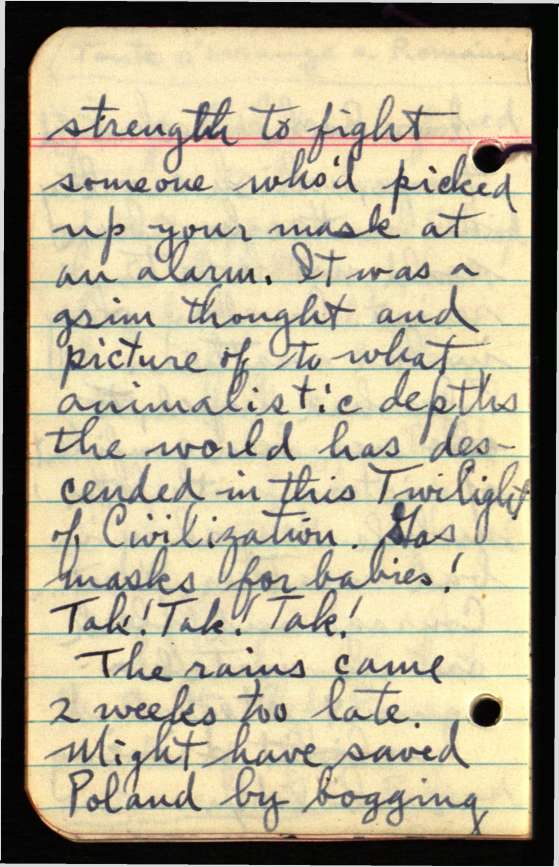 strength to fight
someone who'd picked
up your mask at
an alarm. It was a
grim thought and
picture of to what
animalistic depths
the world has des-
cended in this Twilight
of Civilization. Gas
masks for babies!
Tak! Tak! Tak!
The rains came
2 weeks too late.
Might have saved
Poland by bogging